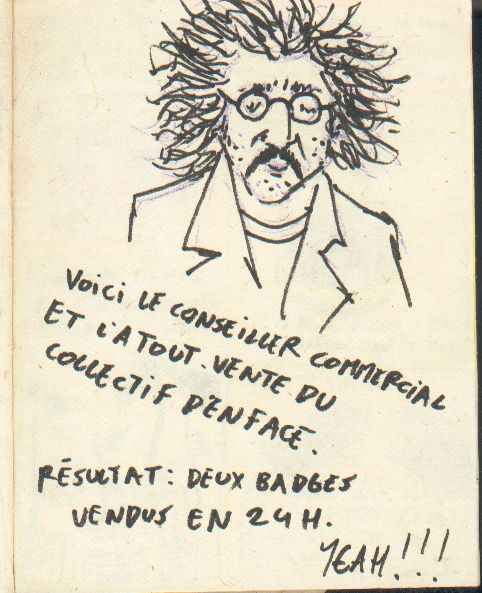 VOICI LE CONSEILLER COMMERCIAL
ET L'ATOUT-VENTE DU
COLLECTIF D'EN FACE.
RÉSULTAT: DEUX BADGES
VENDUS EN 24H.
YEAH!!!